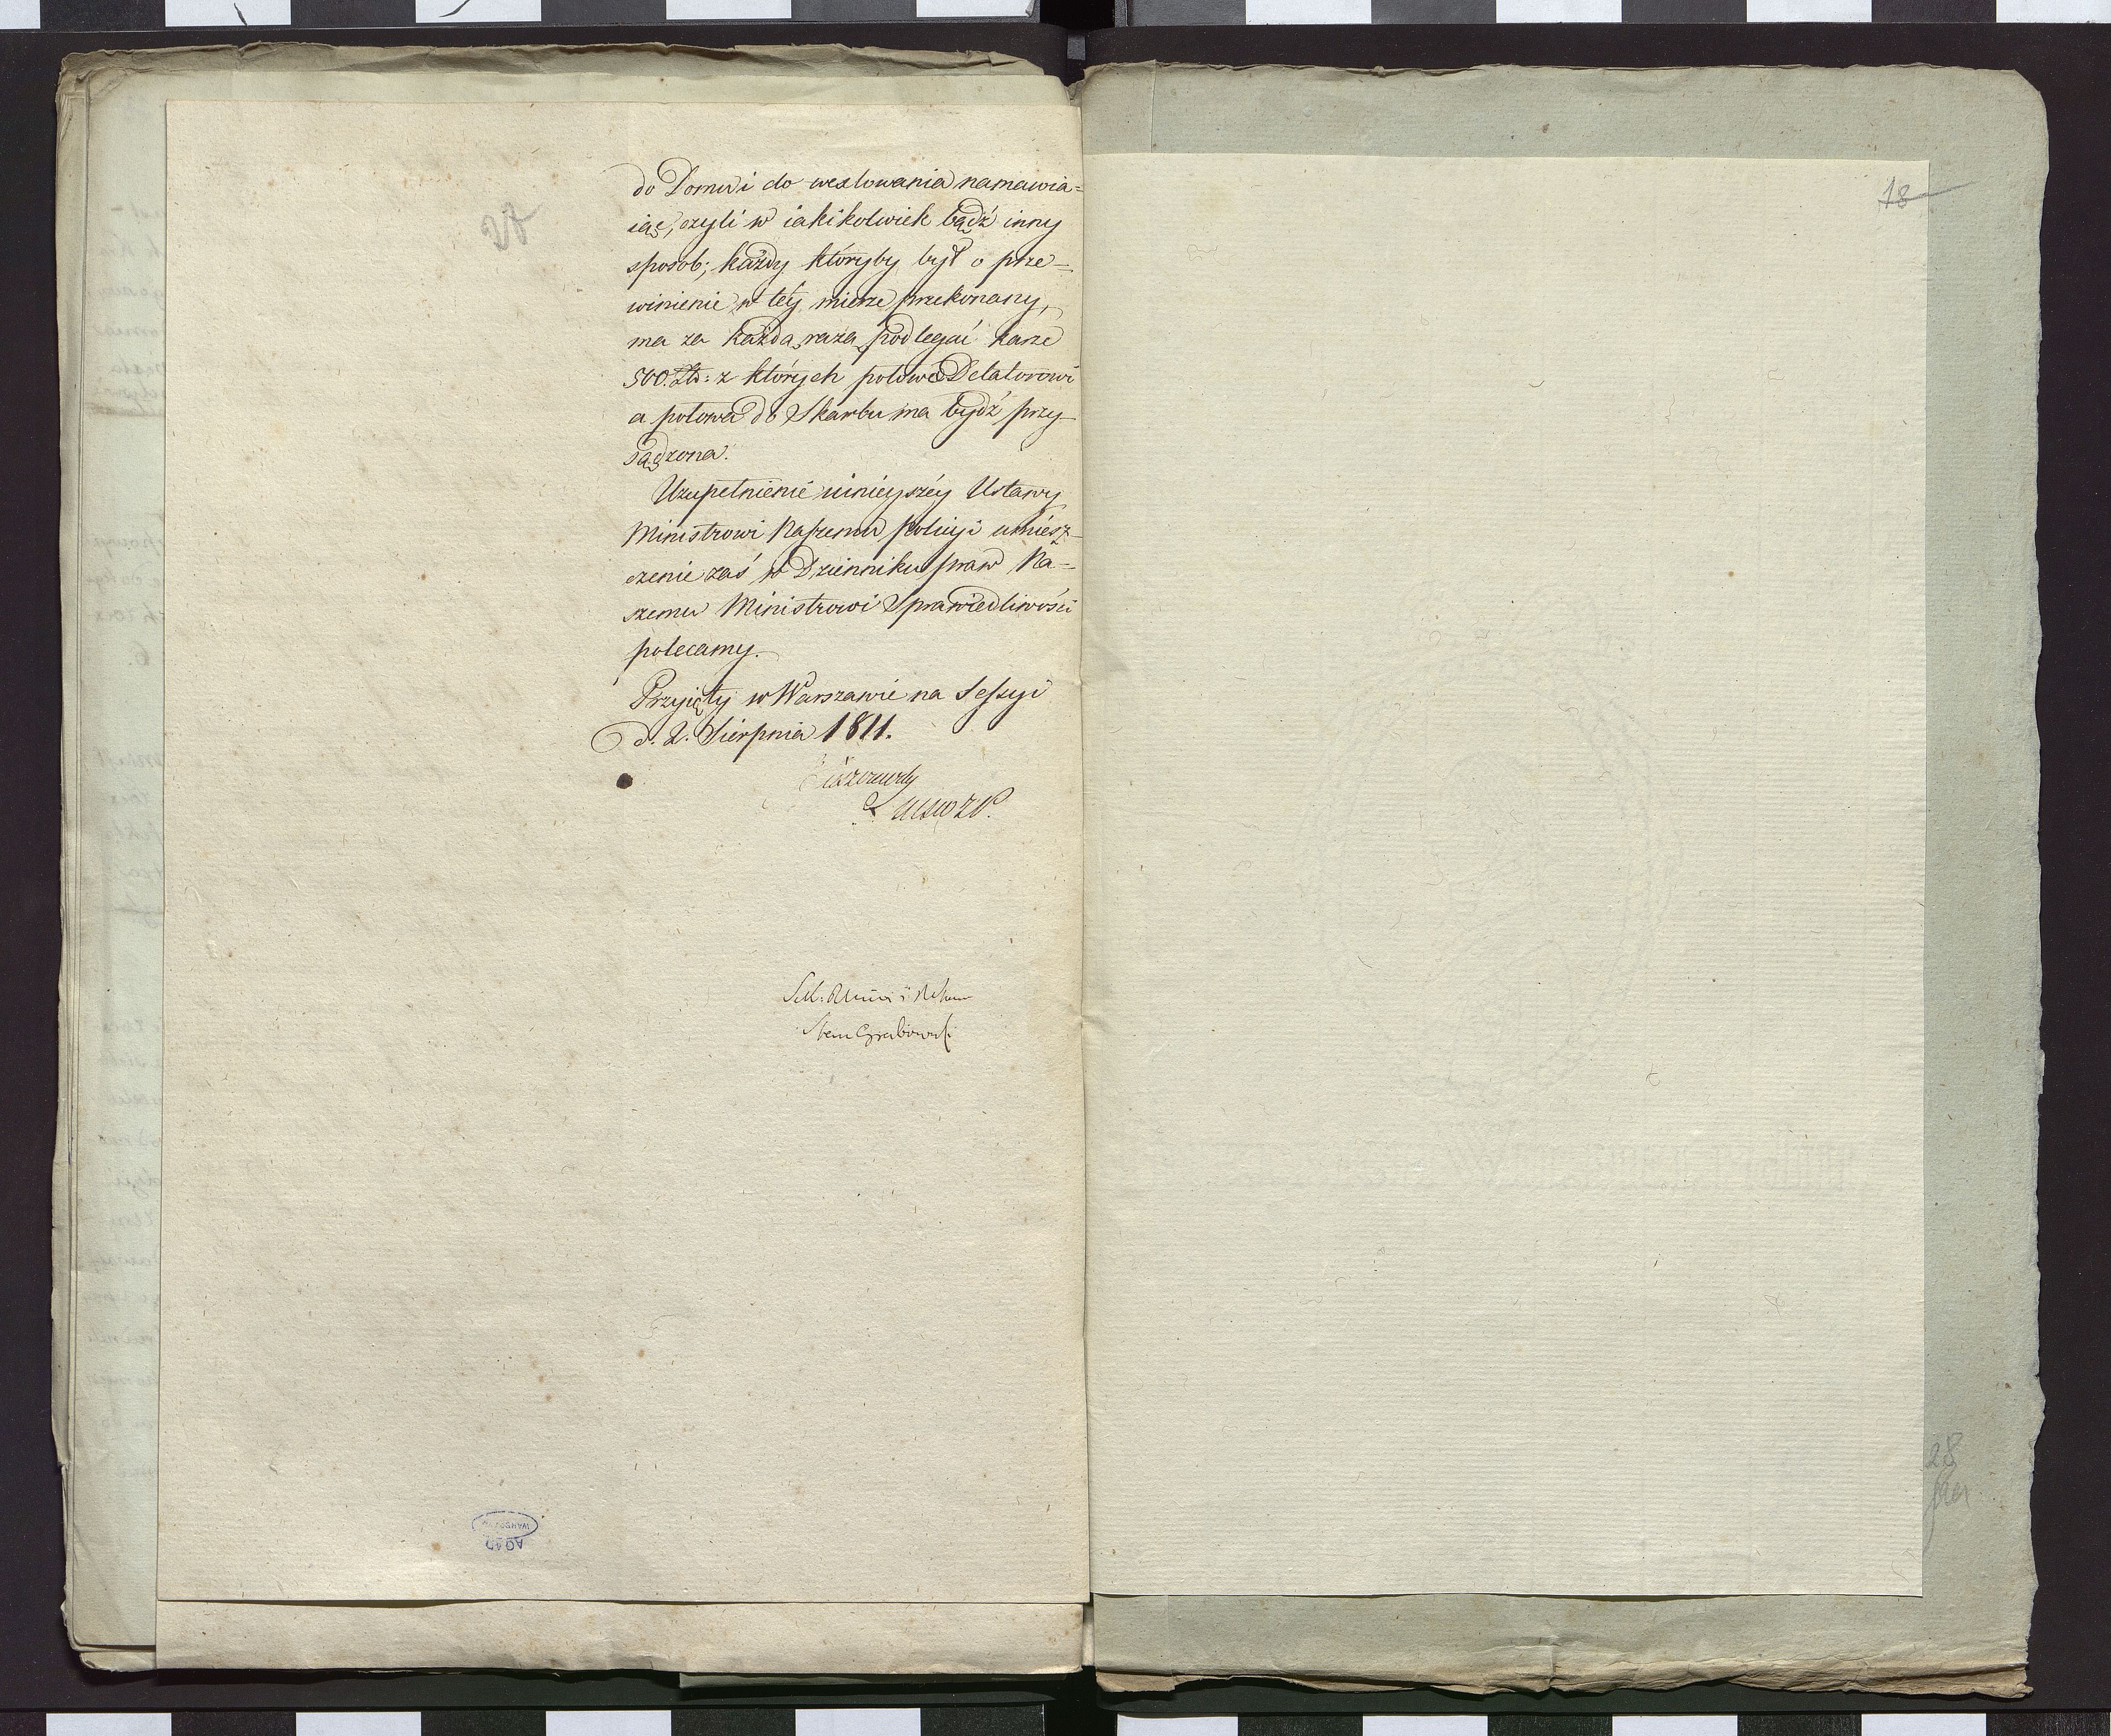 27
do Domu i do wexlowania namawia=
iąc, czyli w iakikolwiek bądź inny
sposob; każdy któryby był o prze=
winienie w téy mierze przekonany,
ma za każdą razą podlegać karze
500. Zło: z których połowa Delatorowi
a połowa do Skarbu ma bydź przy
sądzona.
Uzupełnienie ninieyszéy Ustawy
Ministrowi Naszemu Policyi umiesz=
czenie zaś w Dzienniku praw Na=
szemu Ministrowi Sprawiedliwości
polecamy.
Przyięty w Warszawie na Sessyi
d. 2. Sierpnia 1811.
Stan Grabowski
AGAD
WARSZAWA
18
28